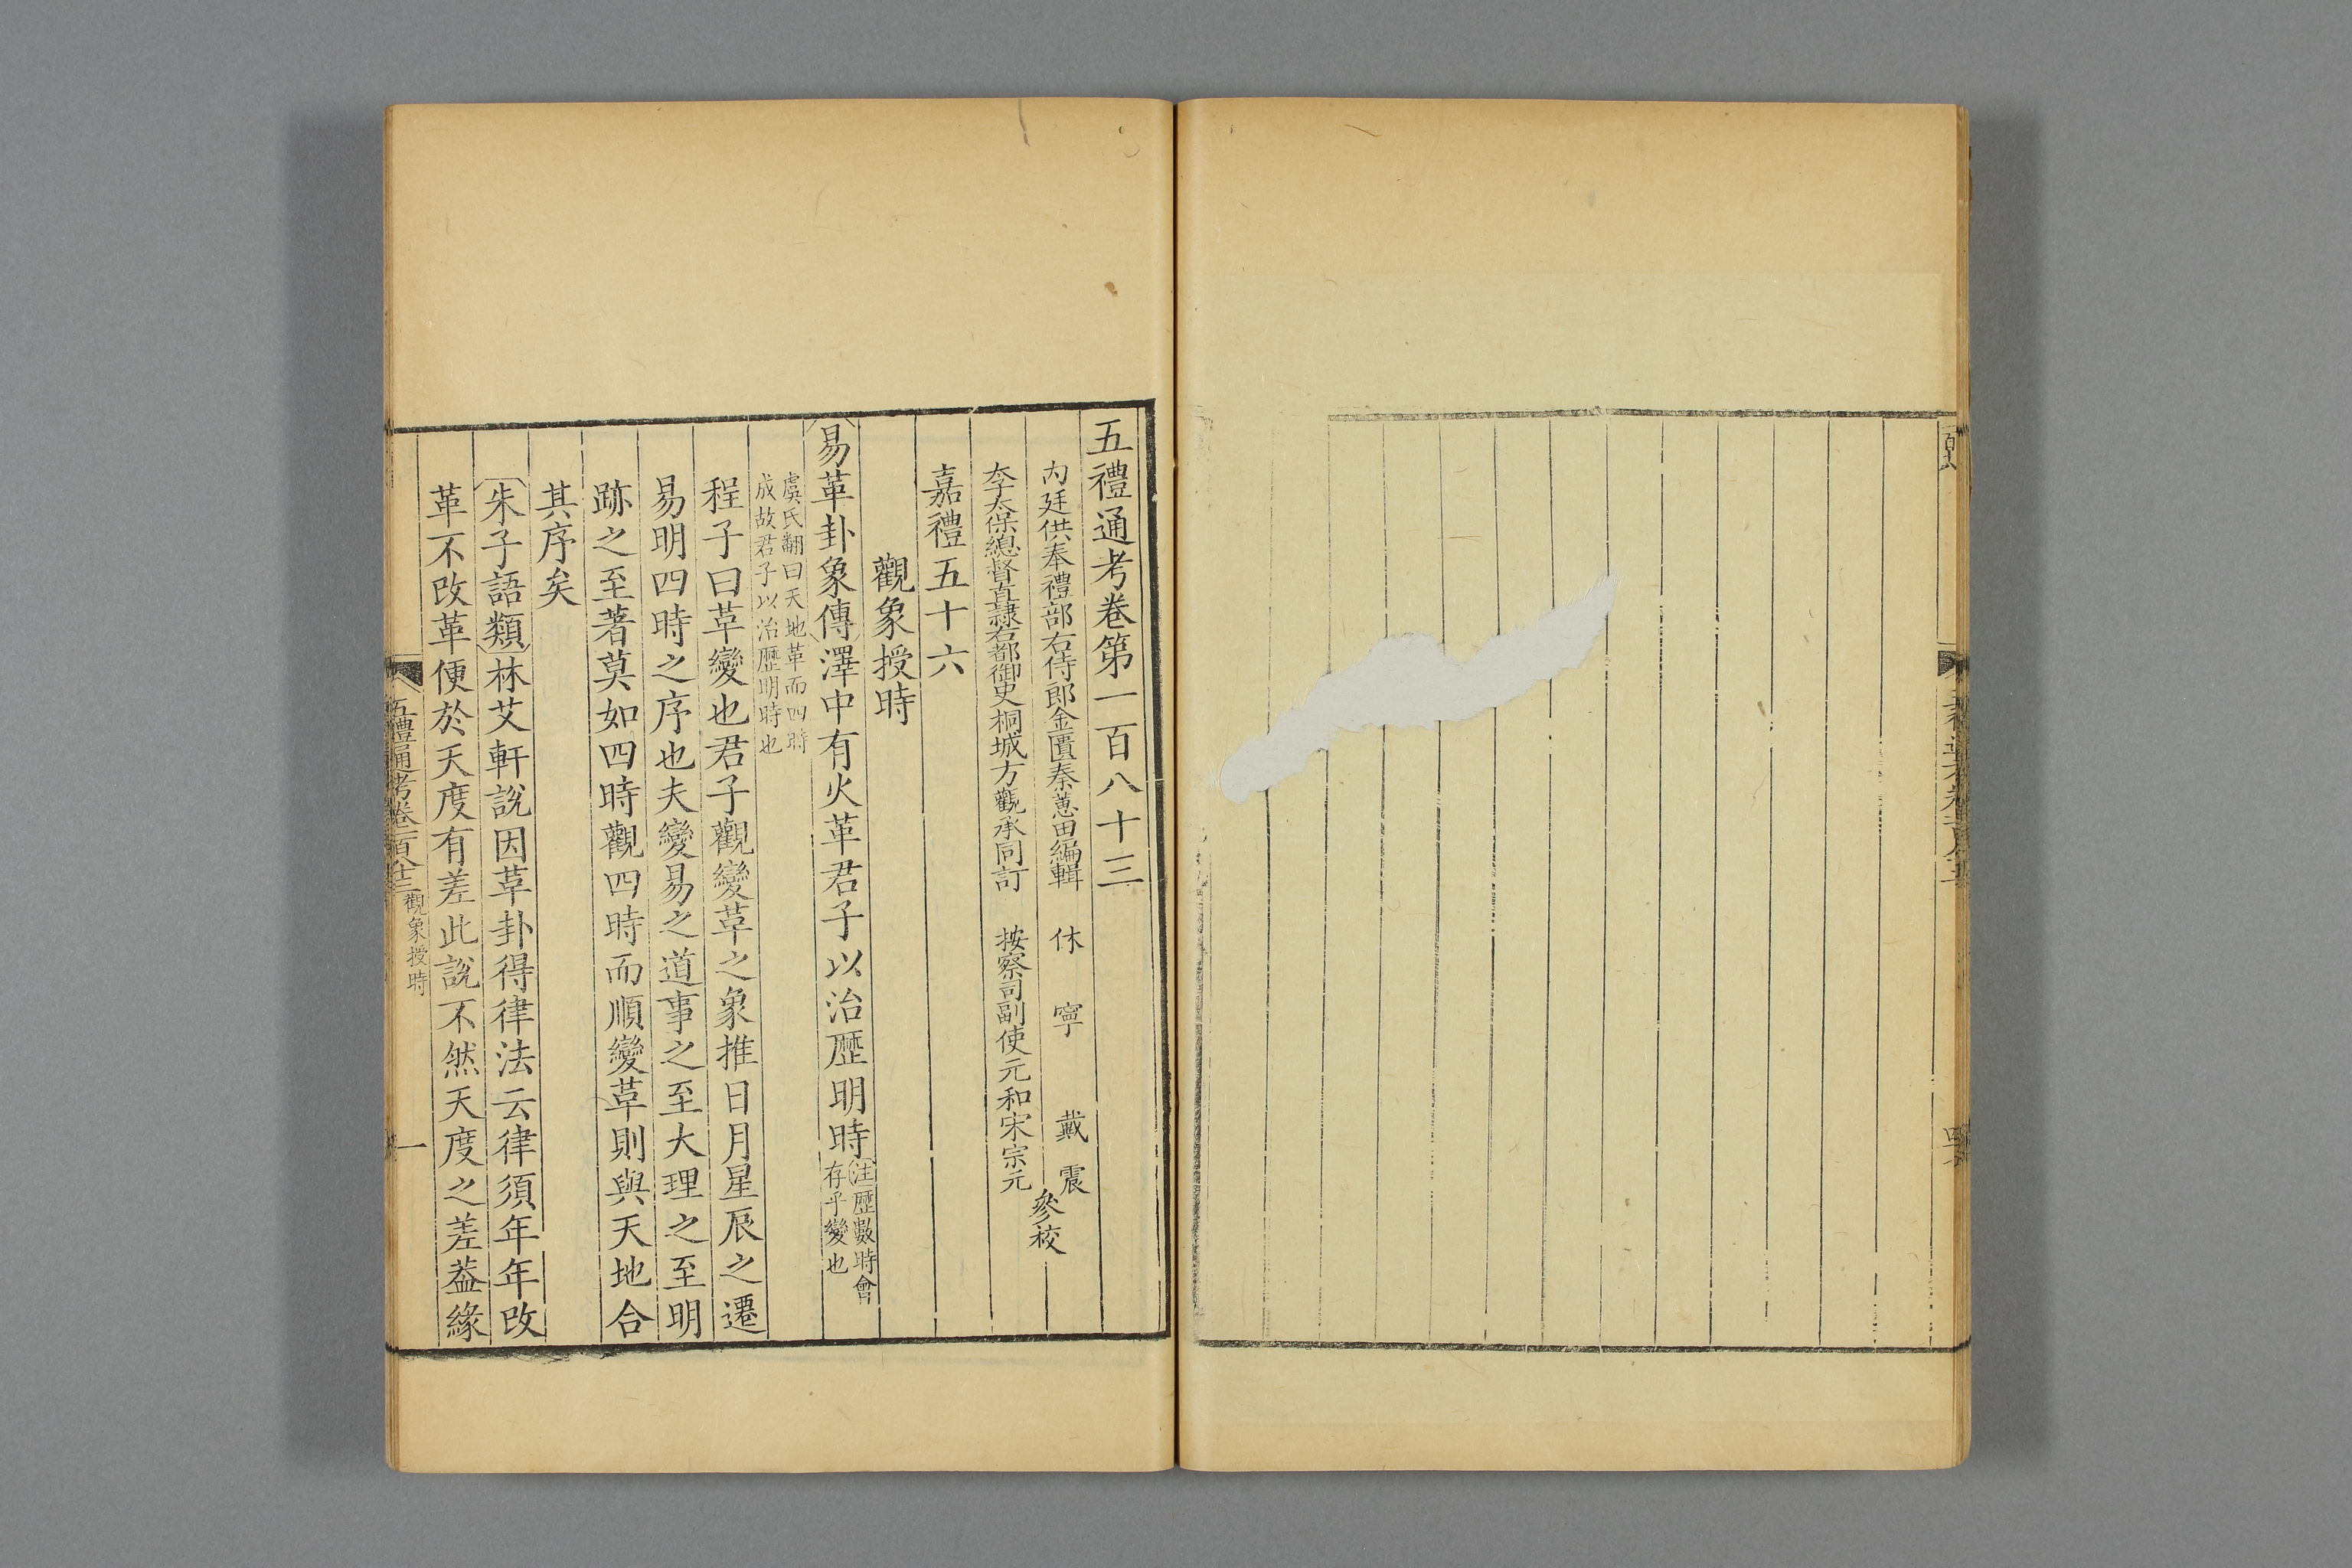 五禮通考卷第一百八十三
內廷供奉禮部右侍郎金匱秦蕙田編輯　休　寧　戴　震
太子太保總督直隸右都御史桐城方觀承同訂　按察司副使元和宋宗元
參校
嘉禮五十六
觀象授時
易革卦象傳澤中有火革君子以治歷明時
注歷數時會
存乎變也
虞氏翻曰天地革而四時
成故君子以治歷明時也
程子曰革變也君子觀變革之象推日月星辰之遷
易明四時之序也夫變易之道事之至大理之至明
跡之至著莫如四時觀四時而順變革則與天地合
其序矣
朱子語類林艾軒說因革卦得律法云律須年年改
革不改革便於天度有差此說不然天度之差葢緣
五禮通考卷一百八十三　觀象授時
一